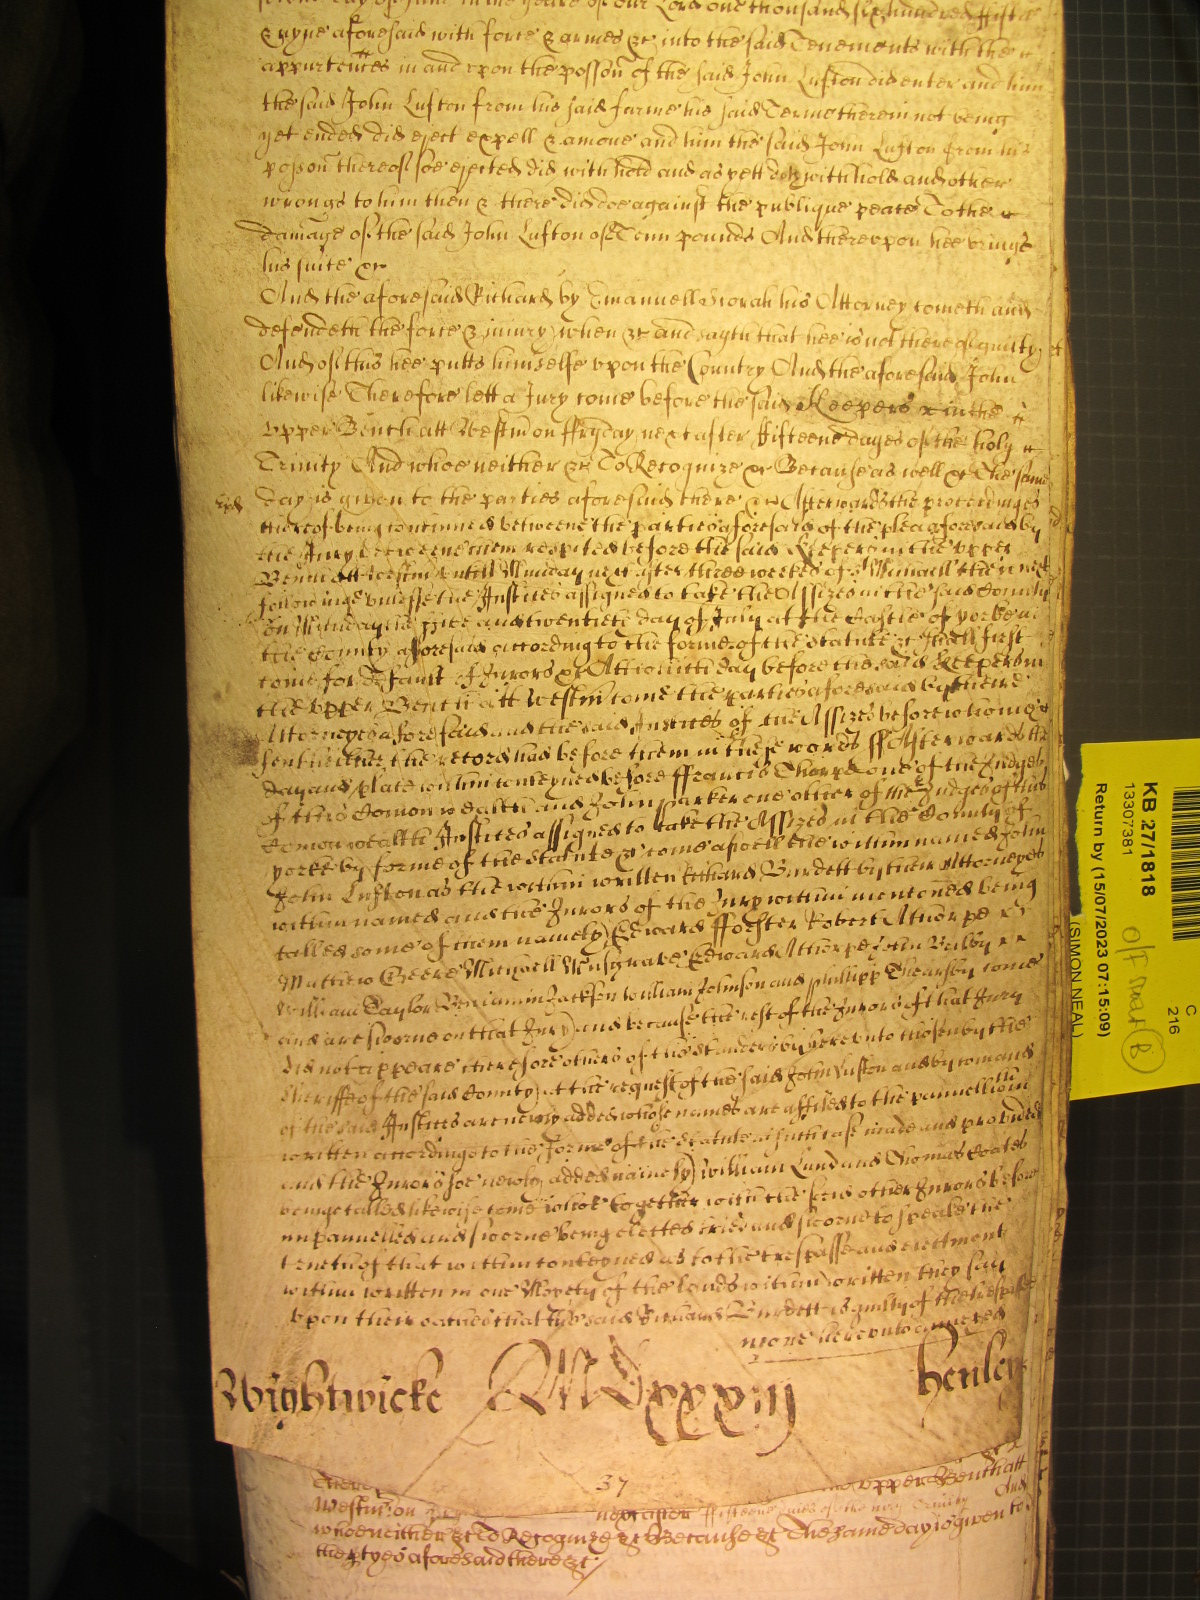 seventh day of June in the yeare of our Lord one thousand six hundred fiftie
& nyne aforesaid with force & armes &c into the said Tenements with the
appurtences in and vpon the possion of the said John Lufton did enter and him
the said John Lufton from his said farme his said Terme therein not being
yet ended did eject expell & amove and him the said John Lufton from his
possion thereof soe ejected did with hold and as yett doth withhold and other
wrongs to him then & there did doe against the publique peace To the
damage of the said John Lufton of Tenn pounds And therevpon hee brings
his suite &c
And the aforesaid Richard by Emanuell his Attorney cometh and
defendeth the force & injury when &c and sayth that hee is not thereof guilty
And of this hee putts himselfe vpon the Country And the aforesaid John
likewise Therefore lett a Jury come before the said Keepers &c in the
vpper Bench att Westm on ffryday next after ffifteene dayes of the holy
Trinity And whoe neither &c To Recognize &c Because as well &c The same
day is given to the parties aforesaid there &c Afterwards the proceedings
thereof being continued betweene the parties aforesaid of the plea aforesaid by
the Jury betweene them respited before the said Keepers in the vpper
Bench att Westm vntill Munday next after three weekes of St Michaell then next
followinge vnlesse the Justices assigned to take the Assizes in the said County
on Munday the five and twentieth day of July at the Castle of yorke in
the County aforesaid according to the forme of the statute &c shall first
come for default of Jurors &c Att which day before the said Keepers in
the vpper Bench att Westm come the parties aforesaid by their
Attorneyes aforesaid and the said Justices of the Assizes before whome &c
sent hither there record had before them in these words ss Afterwards the
day and place within conteyned before ffrancis Thorpe one of the Judges
of this Comon wealth and John Parker one other of the Judges of this
Comon wealth Justices assigned to take the Assizes in the County of
yorke by forme of the statute &c come aswell the within named John
John Lufton as the within written Richard Burdett by their Attorneyes
within named and the Jurors of the Jury within mentioned being
called some of them namely Edward ffoster Robert Athorpe
Mathew Greere Michaell Musgrave Edward Athorpe John Bilby
William Taylor Beniamin Jackson William Johnson and Phillipp Thearsby come
and are sworne on that Jury and because the rest of the Jurors of that Jury
did not appeare therefore others of the standers by herevnto chosen by the
Sheriffe of the said County at the request of the said John Lufton and by comand
of the said Justices are newly added whose names are affiled to the pannell within
written according to the forme of the statute in such case made and provided
and the Jurors soe newly added namely William Lund and Thomas Coates
beinge called likewise come whoe together with the said other Jurors before
impannelled and sworne being elected tried and sworne to speake the
trueth of that within conteyned as to the trespasse and eiectment
within written in one Moyety of the lands within written they say
vpon their oathes that the said Richard Burdett is guilty of the trespasse
more herevnto annexed
Wightwicke MDxxxvij Henley
37
vpper Bench att
Westm on next after ffifteene daies of the holy Trinity And
whoe neither &c To Recognize &c Because &c The same day is given to
the ptyes aforesaid there &c
KB 27/1818
13307381
Return by (15/07/2023 07:15:09)
(SIMON NEAL)
C
216